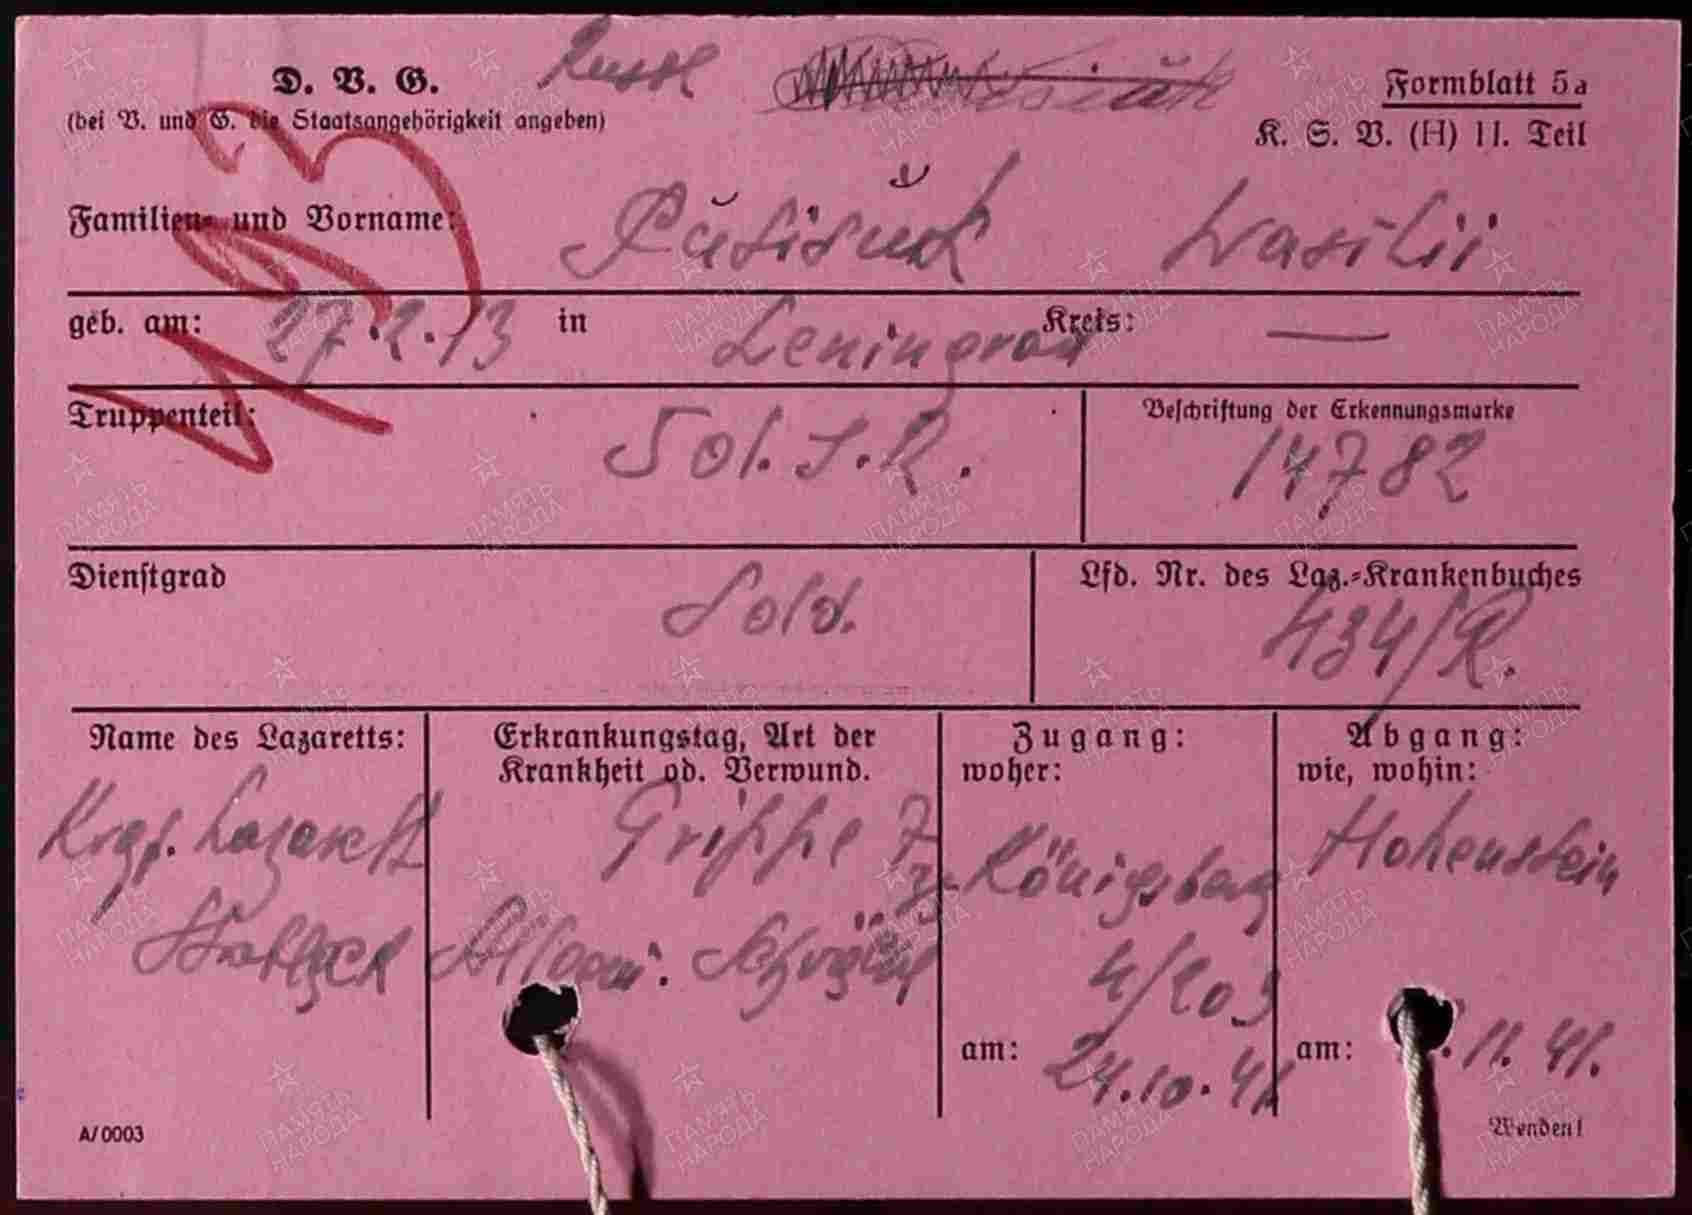 D. V. G. Russl
Formblatt 5a
(bei V. und G. die Staatsangehörigkeit angeben)
K. S. V. (H) II. Teil
193
Familien- und Vorname: Wasilii
geb. am: 27.2.13 in Leningrad Kreis: —
Truppenteil: Sol. I. R.
Beschriftung der Erkennungsmarke
14782
Dienstgrad Sold.
Lfd. Nr. des Laz.-Krankenbuches
434/R.
Name des Lazaretts:
Krgf. Lazarett
Stablack
Erkrankungstag, Art der
Krankheit od. Verwund.
Grippe
Allgem.
Zugang:
woher:
Königsberg
4/203
am: 24.10.41
Abgang:
wie, wohin:
Hohenstein
am: .11.41.
A/0003
Wenden!
ПАМЯТЬ НАРОДА